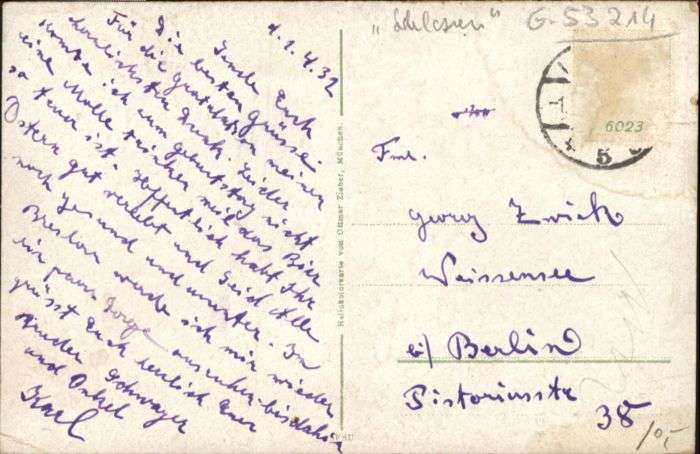 d. 1. 4. 32
Sende Euch
die besten Grüsse.
Für die Gratulation meinen
herzlichsten Dank. Leider
konnte ich zum Geburtstag nicht
eine Molle trinken weil das Bier
so teuer ist. Hoffentlich habt Ihr
Ostern gut verlebt und Seid Alle
noch gesund und munter. In
Breslau werde ich mir wieder
ein paar Tage ausruhen bis dahin
grüsst Euch herzlich Euer
Bruder Schwager
und Onkel
Karl
Heliokolorkarte von Ottmar Zieher, München.
„Schlesien"
G-53214
6023
5
Georg Zwick
Weissensee
b/ Berlin
Pistoriusstr
38
10,-